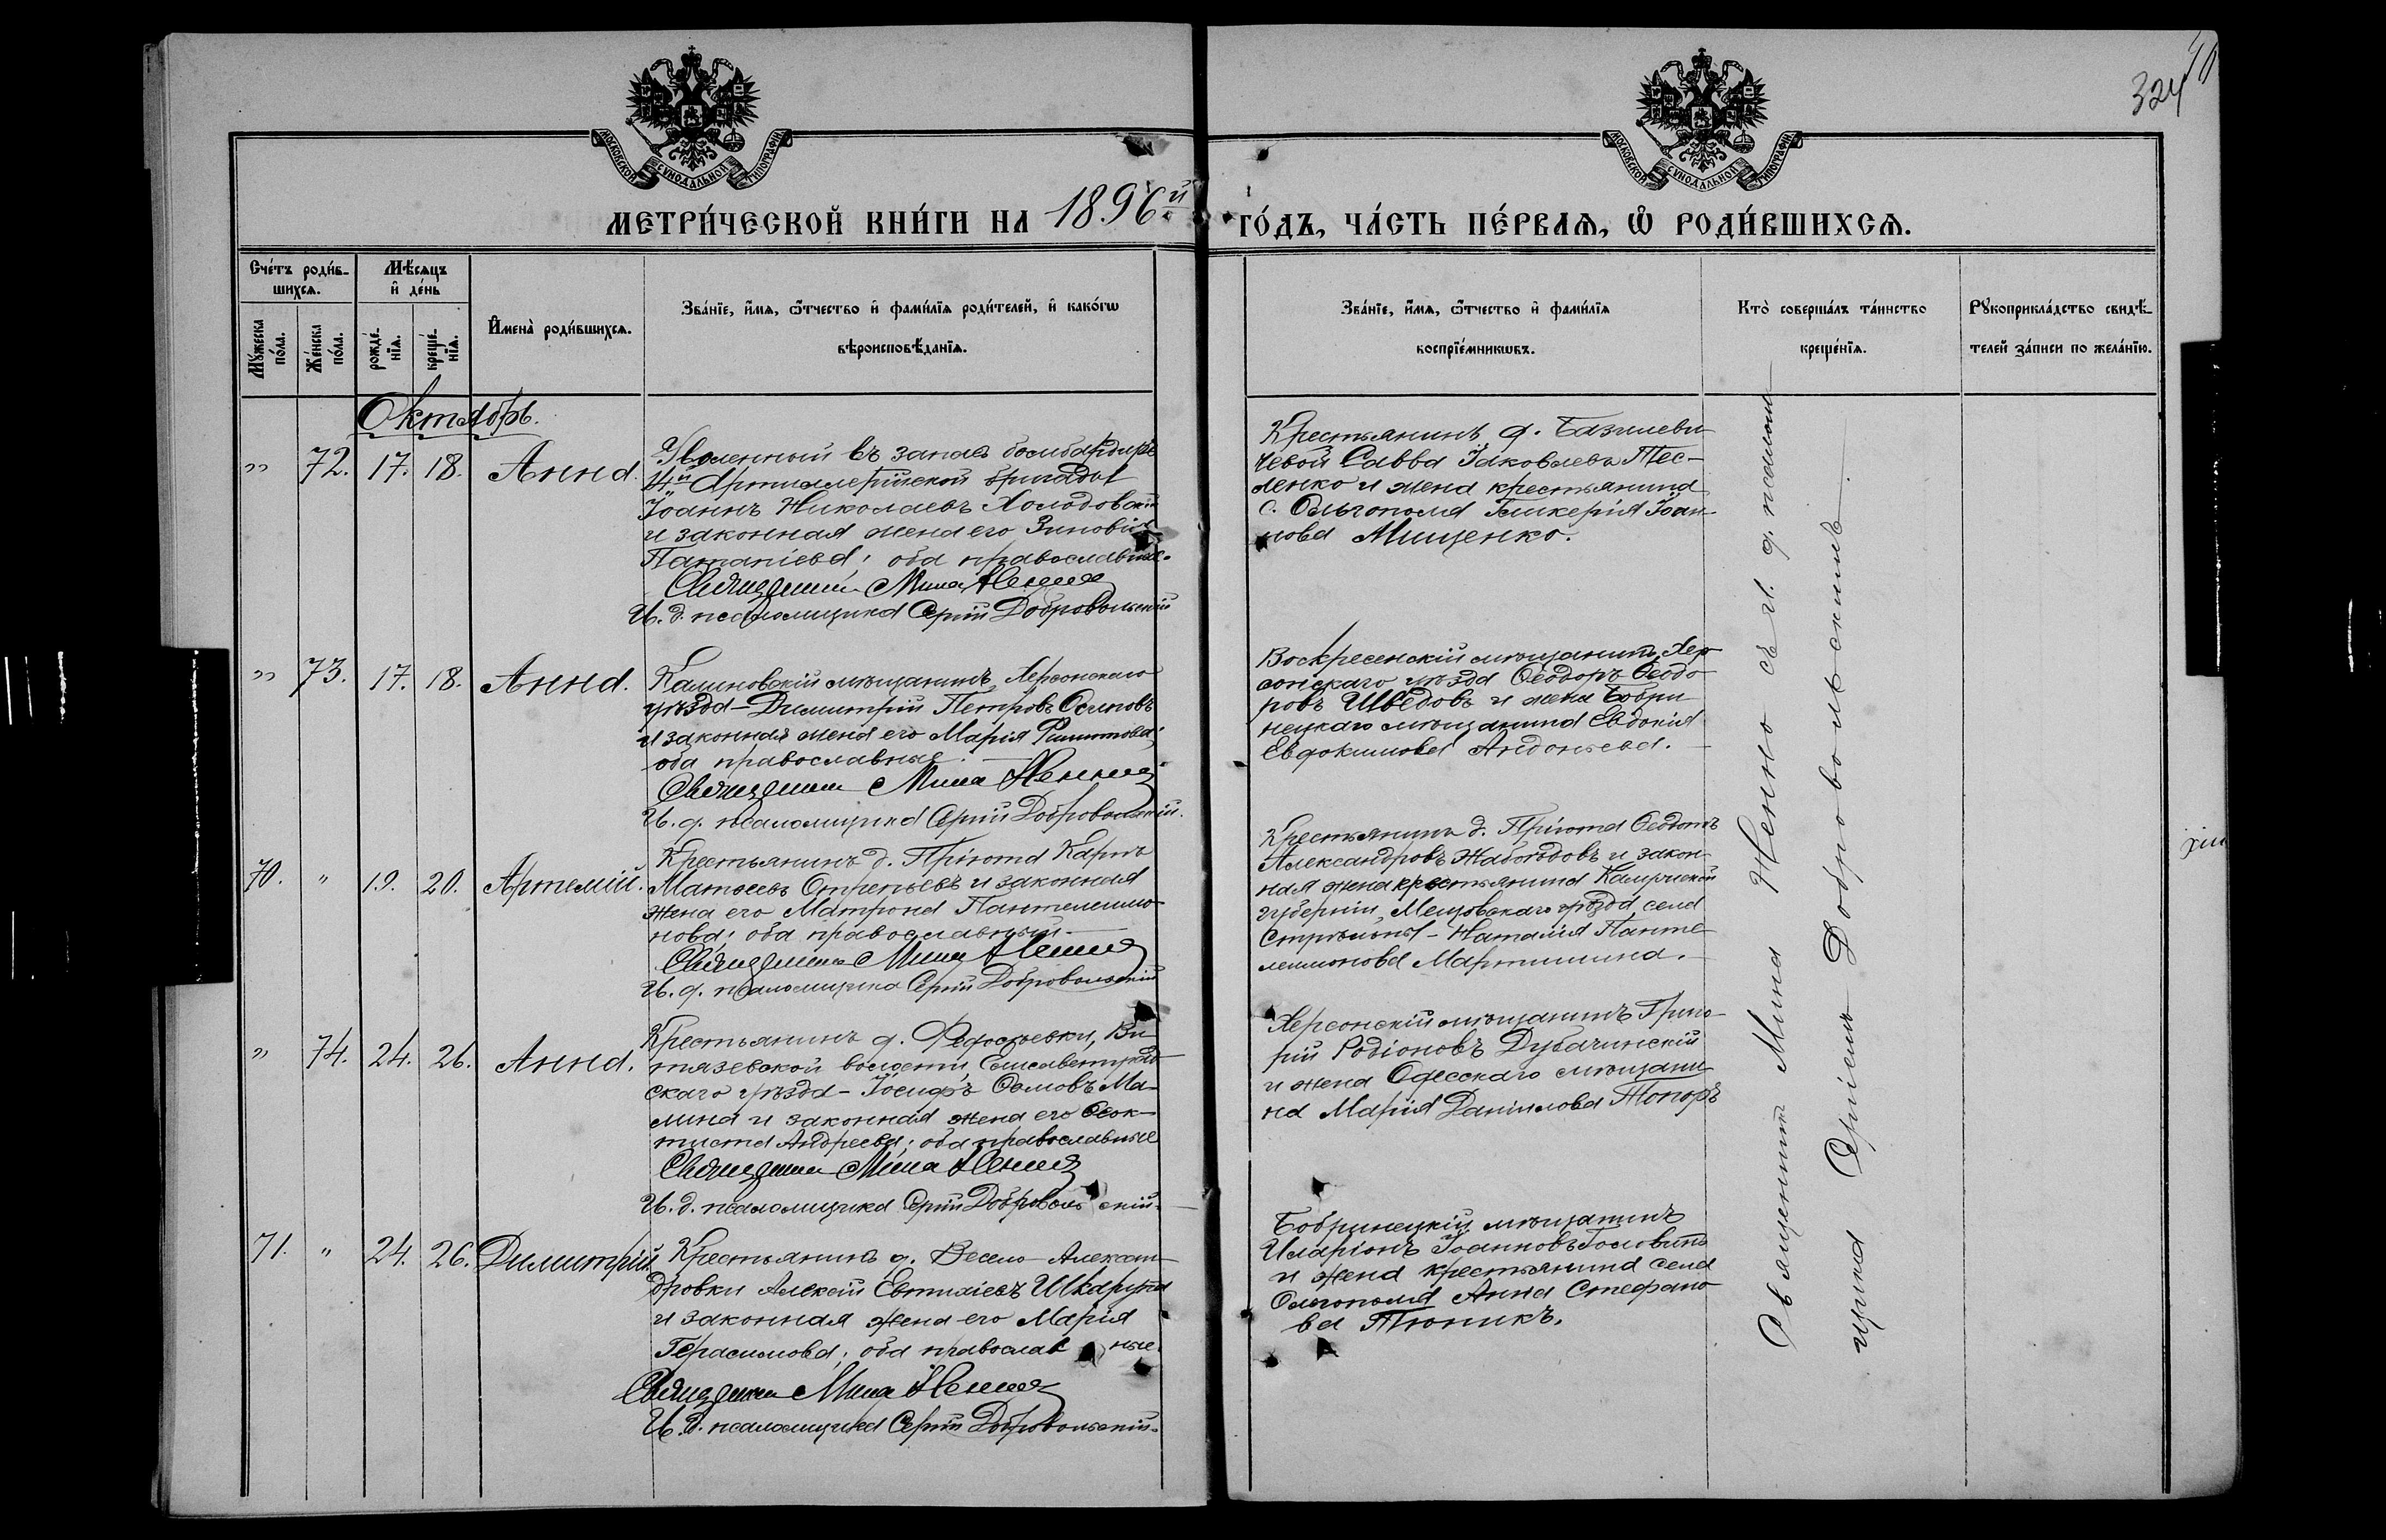 324
МОСКОВСКОЙ СѴНОДАЛЬНОЙ ТИПОГРАФІИ
МОСКОВСКОЙ СѴНОДАЛЬНОЙ ТИПОГРАФІИ
МЕТРИ́ЧЕСКОЙ КНИ́ГИ НА 1896й ГО́ДЪ, ЧА́СТЬ ПЕ́РВАѦ, Ѡ҆ РОДИ́ВШИХСѦ.
Сче́тъ роди́в-
шихсѧ.
Мꙋ́жеска
по́ла.
Же́нска
по́ла.
Мѣ́сѧцъ
и҆ де́нь
рожде́-
нїѧ.
креще́-
нїѧ.
И҆мена̀ роди́вшихсѧ.
Зва́нїе, и҆́мѧ, ѻ҆́тчество и҆ фами́лїѧ роди́телей, и҆ како́гѡ
вѣроисповѣ́данїѧ.
Зва́нїе, и҆́мѧ, ѻ҆́тчество и҆ фами́лїѧ
воспрїе́мникѡвъ.
Кто̀ соверша́лъ та́инство
креще́нїѧ.
Рꙋкоприкла́дство свидѣ́-
телей за́писи по жела́нїю.
Октябрь.
" 72. 17. 18. Анна.
Уволенный въ запасъ бомбардиръ
Артиллерійской бригады
Іоаннъ Николаевъ Холодовскій
и законная жена его Зиновія
Патапіева; оба православные.
Священникъ Мина Ненно
И. д. псаломщика Сергій Добровольскій
Крестьянинъ д. Базилеви-
чевой Савва Іаковлевъ Тес-
ленко и жена крестьянина
с. Ольгополя Гликерія Іоан-
нова Мищенко.
" 73. 17. 18. Анна.
Калиновскій мѣщанинъ, Херсонскаго
уѣзда - Димитрій Петровъ Осиповъ
и законная жена его Марія
оба православные.
Священникъ Мина Ненно
И. д. псаломщика Сергій Добровольскій.
Воскресенскій мѣщанинъ, Хер-
сонскаго уѣзда Ѳеодоръ Ѳеодо-
ровъ Шведовъ и жена Бобри-
нецкаго мѣщанина Евдокія
Евдокимова Андоньева.
70. " 19. 20. Артемій.
Крестьянинъ д. Пріюта Карпъ
Матѳеевъ Отрепьевъ и законная
жена его Матрона Пантелеимо-
нова; оба православные.
Священникъ Мина Ненно
И. д. псаломщика Сергій Добровольскій
Крестьянинъ д. Пріюта Ѳеодотъ
Александровъ Жабоѣдовъ и закон-
ная жена крестьянина Калужской
губерніи, Мещовскаго уѣзда села
- Наталія Панте-
леимонова Мартишина.
" 74. 24. 26. Анна.
Крестьянинъ д. Федосѣевки, Ви-
тязевской волости, Елисаветград-
скаго уѣзда - Іосифъ Ма-
лина и законная жена его Ѳеок-
тиста Андреева; оба православные
Священникъ Мина Ненно
И. д. псаломщика Сергій Добровольскій.
Херсонскій мѣщанинъ Григо-
рій Родіоновъ Дубачинскій
и жена Одесскаго мѣщани-
на Марія Даніилова Топоръ
71. " 24. 26. Димитрій.
Крестьянинъ д. Весело-Алексан-
дровки Алексій Евтихіевъ Шкарупа
и законная жена его Марія
Герасимова; оба православные.
Священникъ Мина Ненно
И. д. псаломщика Сергій Добровольскій.
Бобринецкій мѣщанинъ
Иларіонъ Іоанновъ Головинъ
и жена крестьянина села
Ольгополя Анна Стефано-
ва Тюпикъ.
Священникъ Мина Ненно съ и. д. псалом-
щика Сергіемъ Добровольскимъ